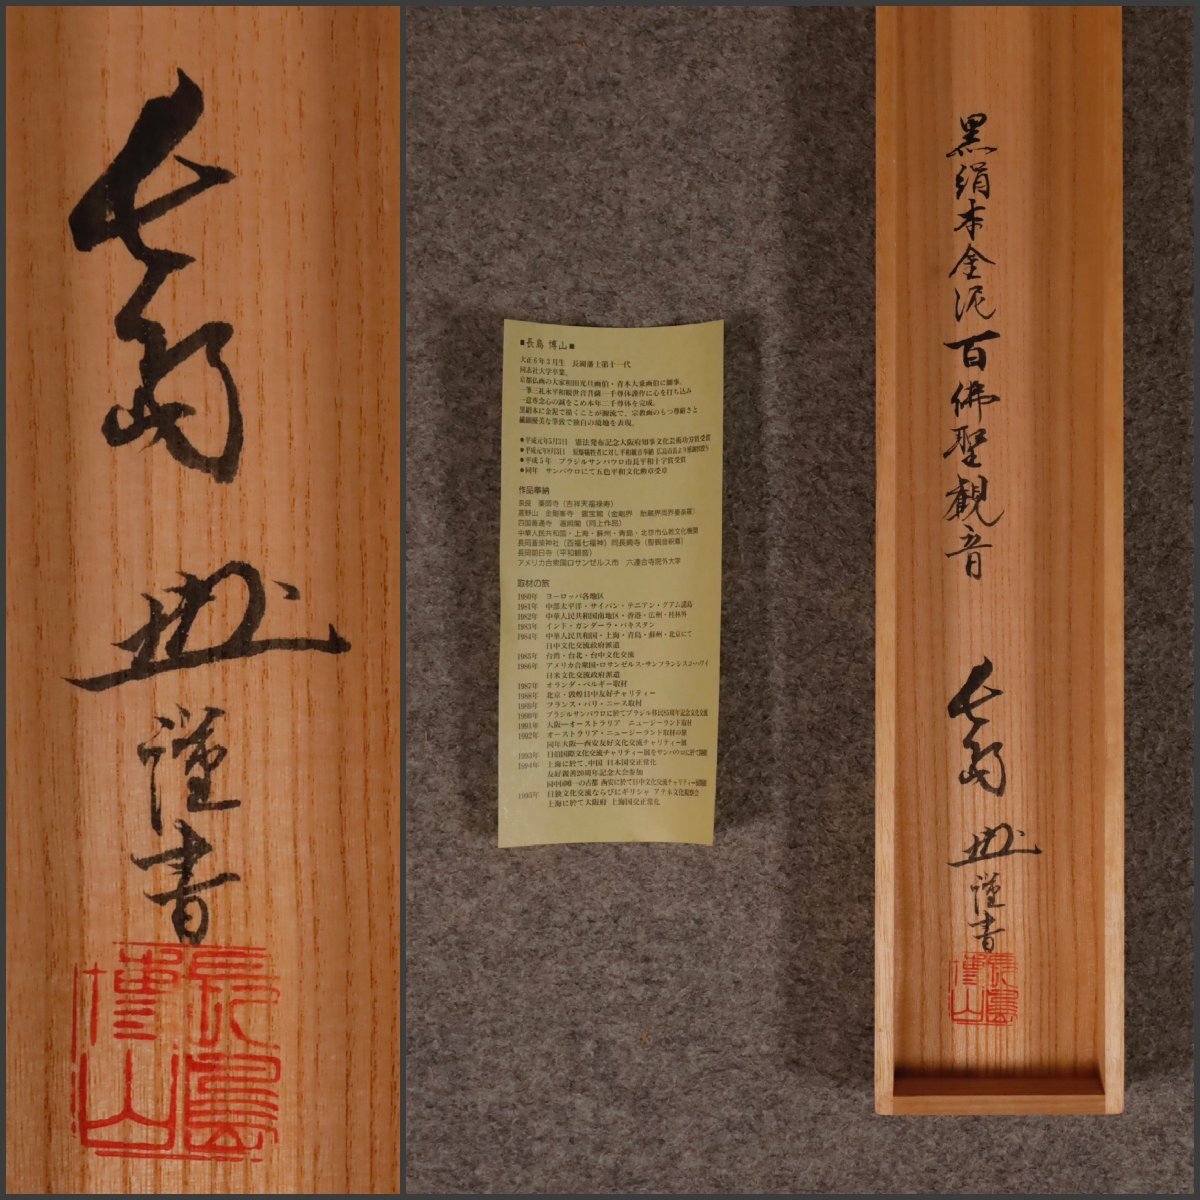 謹書
長島
博山
■長島 博山■
大正6年3月生 長岡藩士第十一代
同志社大学卒業。
京都仏画の大家和田光月画伯・青木大乗画伯に師事。
一筆三礼永平和観世音菩薩一千尊体謹作に心を打ち込み
一意専念心の誠をこめ本年二千尊体を完成。
黒絹本に金泥で描くことが源流で、宗教画のもつ尊厳さと
繊細優美な筆致で独自の境地を表現。
●平成元年5月3日 憲法発布記念大阪府知事文化芸術功労賞受賞
●平成5年 ブラジルサンパウロ市長平和十字賞受賞
●同年 サンパウロにて五色平和文化勲章受章
作品奉納
奈良 薬師寺（吉祥天福禄寿）
高野山 金剛峯寺 霊宝館（金剛界 胎蔵界両界曼荼羅）
四国善通寺 遍照閣（同上作品）
中華人民共和国・上海・蘇州・青島・北京市仏教文化機関
長岡蒼柴神社（百福七福神）同長興寺（聖観音釈尊）
長岡朝日寺（平和観音）
アメリカ合衆国ロサンゼルス市 六連合寺院外大学
取材の旅
1980年 ヨーロッパ各地区
1981年 中部太平洋・サイパン・テニアン・グアム諸島
1982年 中華人民共和国南地区・香港・広州・桂林外
1983年 インド・ガンダーラ・パキスタン
1984年 中華人民共和国・上海・青島・蘇州・北京にて
日中文化交流政府派遣
1985年 台湾・台北・台中文化交流
1986年 アメリカ合衆国・ロサンゼルス・サンフランシスコ・ハワイ
日米文化交流政府派遣
1987年 オランダ・ベルギー取材
1988年 北京・敦煌日中友好チャリティー
1989年 フランス・パリ・ニース取材
1990年 ブラジルサンパウロに於てブラジル移民85周年記念文化交流
1991年 大阪―オーストラリア ニュージーランド取材
1992年 オーストラリア・ニュージーランド取材の旅
同年大阪―西安友好文化交流チャリティー展
1993年 日伯国際文化交流チャリティー展をサンパウロに於て開催
1994年 上海に於て、中国 日本国交正常化
友好親善20周年記念大会参加
同中国唯一の古都 西安に於て日中文化交流チャリティー展開催
1995年 日独文化交流ならびにギリシャ アテネ文化視察会
上海に於て大阪府 上海国交正常化
黒絹本金泥百佛聖観音
謹書
長島
博山